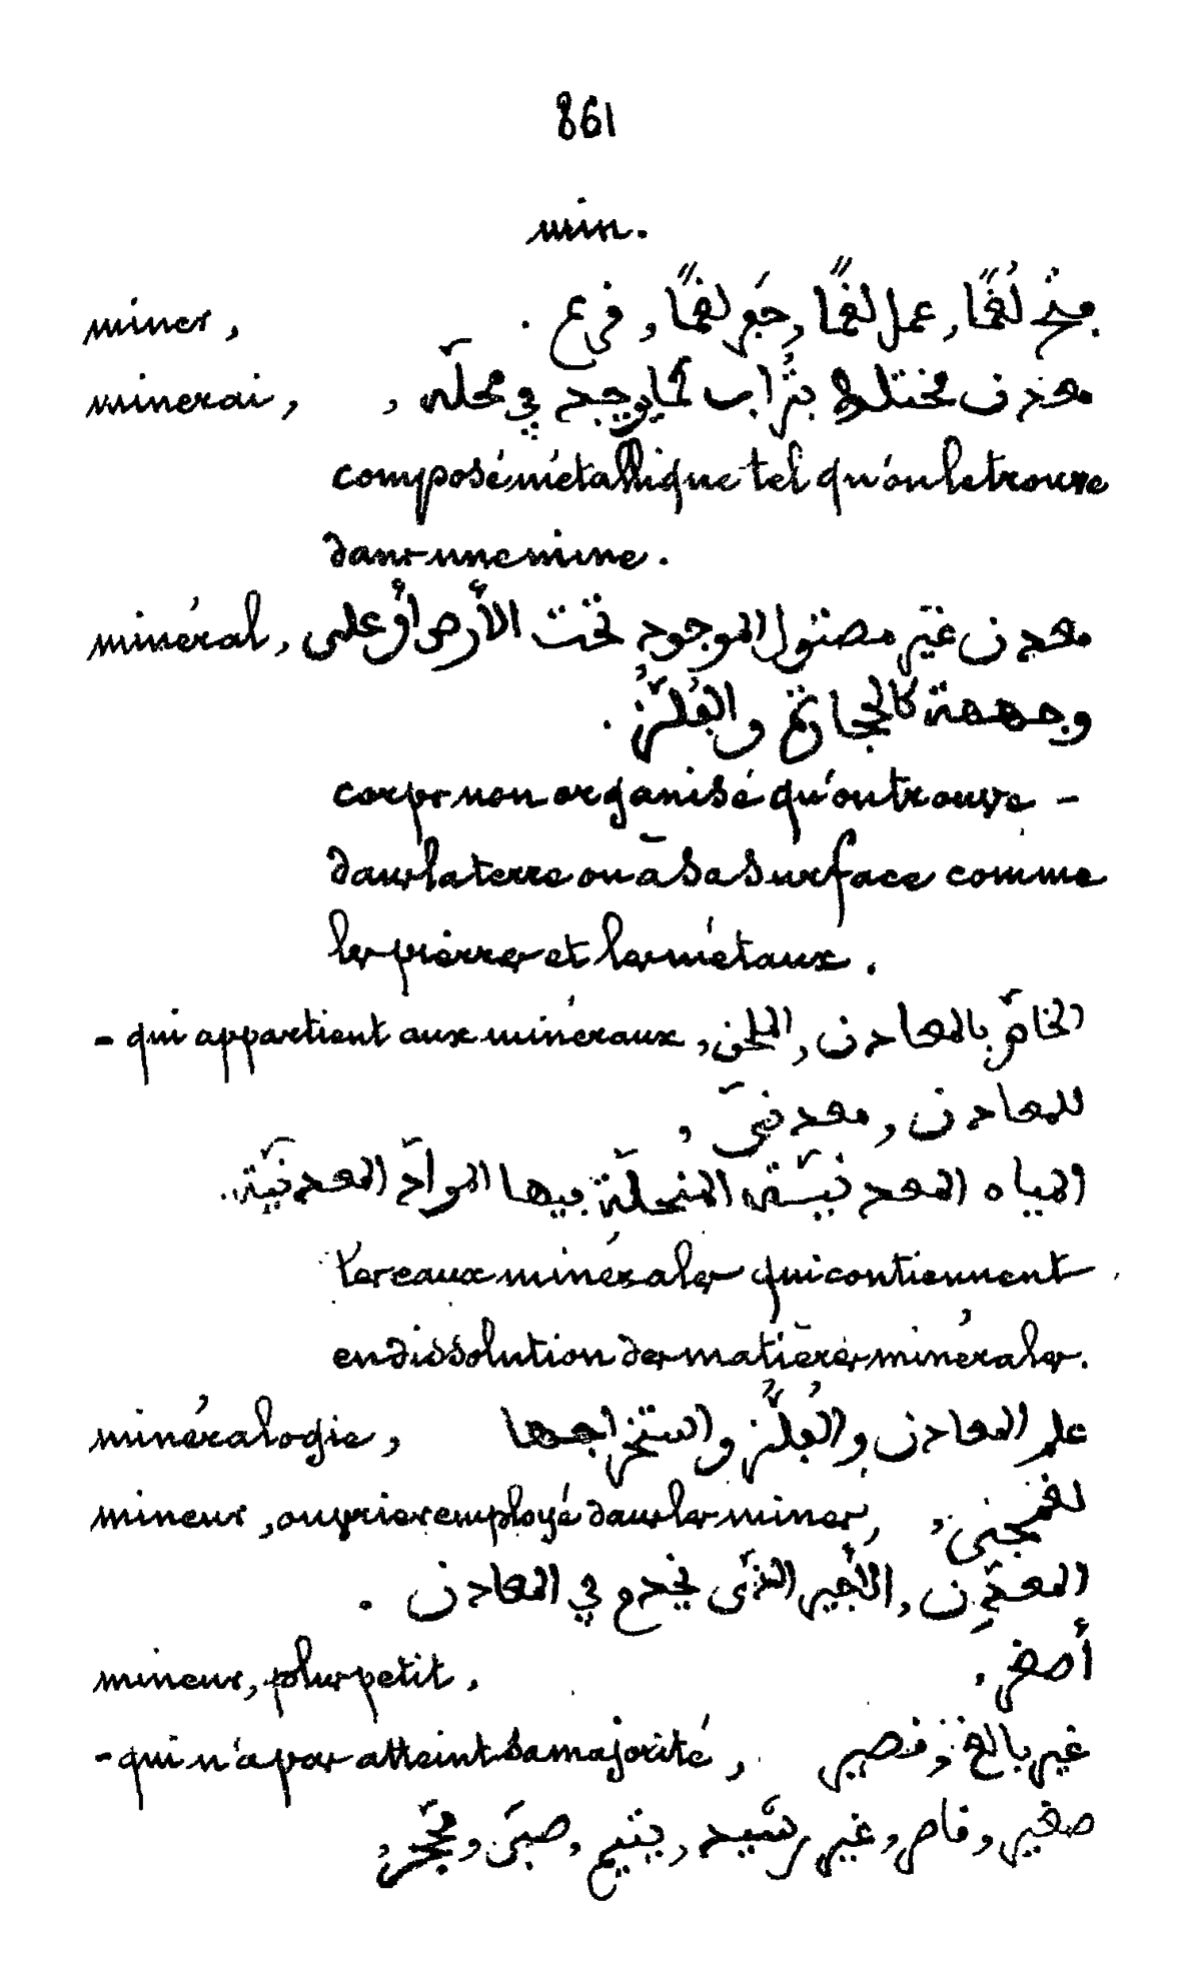 861
min.
miner, لُغْمًا, عمل لغمًا, لغمًا, فرع.
minerai, معدن مختلط بتُراب كما يوجد في محلّه,
composé métallique tel qu'on le trouve
dans une mine.
minéral, معدن غير الموجود تحت الأرض أو على
وجهه كالحجارة والفُلزّ.
corps non organisé qu'on trouve -
dans la terre ou à sa surface comme
les pierres et les métaux.
- qui appartient aux minéraux, الخاصّ بالمعادن,
للمعادن, معدنيّ,
المياه المعدنيّة المنحلّة فيها الموادّ المعدنيّة.
les eaux minérales qui contiennent
en dissolution des matières minérales.
minéralogie, علم المعادن والفُلزّ واستخراجها
mineur, ouvrier employé dans les mines, لغمجيّ,
المعدّن, الأجير الذي يخدم في المعادن.
mineur, plus petit, أصغر.
- qui n'a pas atteint sa majorité, غير بالغ,
صغير, قاصر, غير رشيد, يتيم, صبيّ,